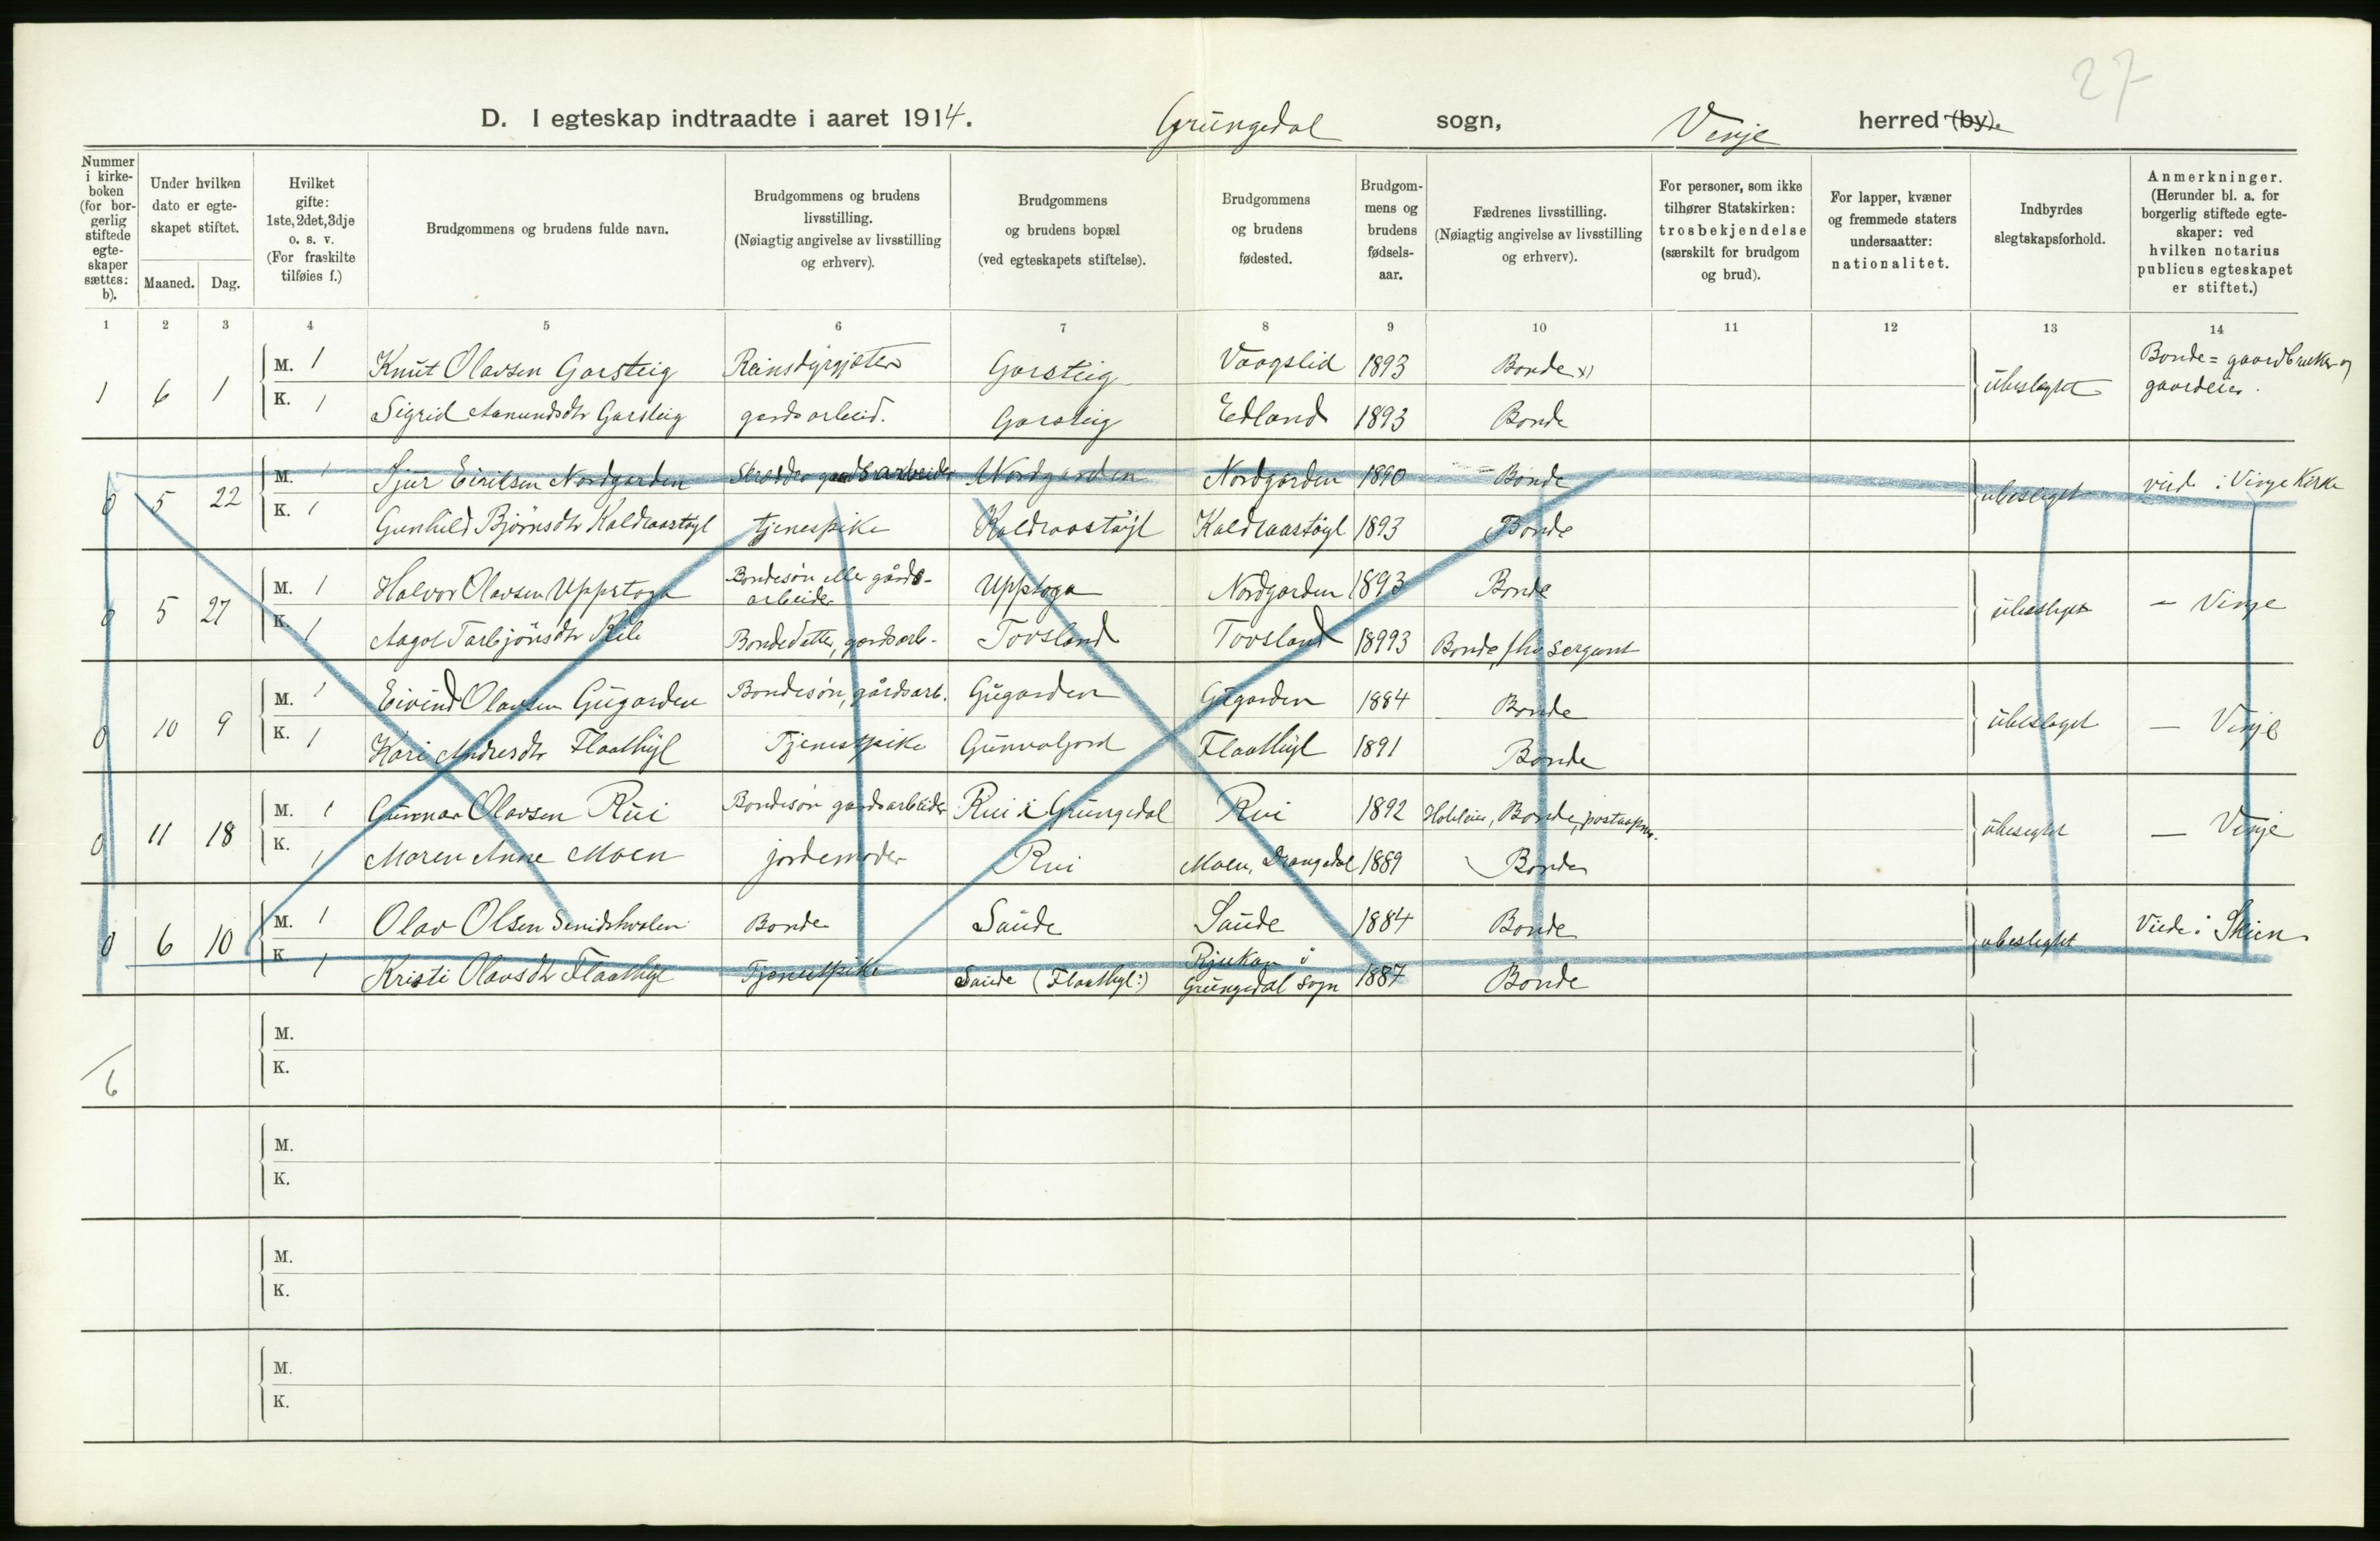 27
D. I egteskap indtraadte i aaret 1914. Grungedal sogn, Vinje herred (by).
Nummer i kirke-boken (for bor-gerlig stiftede egte-skaper sættes: b).
Under hvilken dato er egte-skapet stiftet.
Maaned. Dag.
Hvilket gifte: 1ste, 2det, 3dje o. s. v. (For fraskilte tilføies f.)
Brudgommens og brudens fulde navn.
Brudgommens og brudens livsstilling. (Nøiagtig angivelse av livsstilling og erhverv).
Brudgommens og brudens bopæl (ved egteskapets stiftelse).
Brudgommens og brudens fødested.
Brudgom-mens og brudens fødsels-aar.
Fædrenes livsstilling. (Nøiagtig angivelse av livsstilling og erhverv).
For personer, som ikke tilhører Statskirken: trosbekjendelse (særskilt for brudgom og brud).
For lapper, kvæner og fremmede staters undersaatter: nationalitet.
Indbyrdes slegtskapsforhold.
Anmerkninger. (Herunder bl. a. for borgerlig stiftede egte-skaper: ved hvilken notarius publicus egteskapet er stiftet.)
1 2 3 4 5 6 7 8 9 10 11 12 13 14
1 6 1 M. 1 Knut Olavsen Garsteig Reinsdyrgjæter Garsteig Vaagslid 1893 Bonde x) ubeslegtet Bonde = gaardbruker og gaardeier.
K. 1 Sigrid Aamundsdtr Garsteig gardsarbeid. Garsteig Edland 1893 Bonde
0 5 22 M. 1 Sjur Eiriksen Nordgarden Skrædder gaardsarbeider Nordgarden Nordgarden 1890 Bonde ubeslegtet viede i Vinje Kirke
K. 1 Gunhild Bjørnsdtr Kaldraastøyl tjenestpike Kaldraastøyl Kaldraastøyl 1893 Bonde
0 5 27 M. 1 Halvor Olavsen Uppstoga Bondesøn eller gårds-arbeider Uppstoga Nordgarden 1893 Bonde ubeslegtet - Vinje
K. 1 Aagot Tarbjønsdtr Bondedatter, gardsarb. Tovsland Tovsland 18993 Bonde, fhv sergeant
0 10 9 M. 1 Eivind Olavsen Gugarden Bondesøn, gårdsarb. Gugarden Gugarden 1884 Bonde ubeslegtet — Vinje
K. 1 Kari Andresdtr Flaathyl Tjenestpike Gunvaljord Flaathyl 1891 Bonde
0 11 18 M. 1 Gunnar Olavsen Rui Bondesøn gardsarbeider Rui i Grungedal Rui 1892 Bonde, postaapner. ubeslegtet — Vinje
K. 1 Maren Anne Moen jordemoder Rui Moen, Drangedal 1889 Bonde
0 6 10 M. 1 Olav Olsen Bonde Saude Saude 1884 Bonde ubeslegtet Viede i Skien
K 1 Kristi Olavsdtr Flaathyl Tjenestpike Saude (Flaathyl:) Rjukan i Grungedal sogn 1887 Bonde
M.
K.
/6
M.
K.
M.
K.
M.
K.